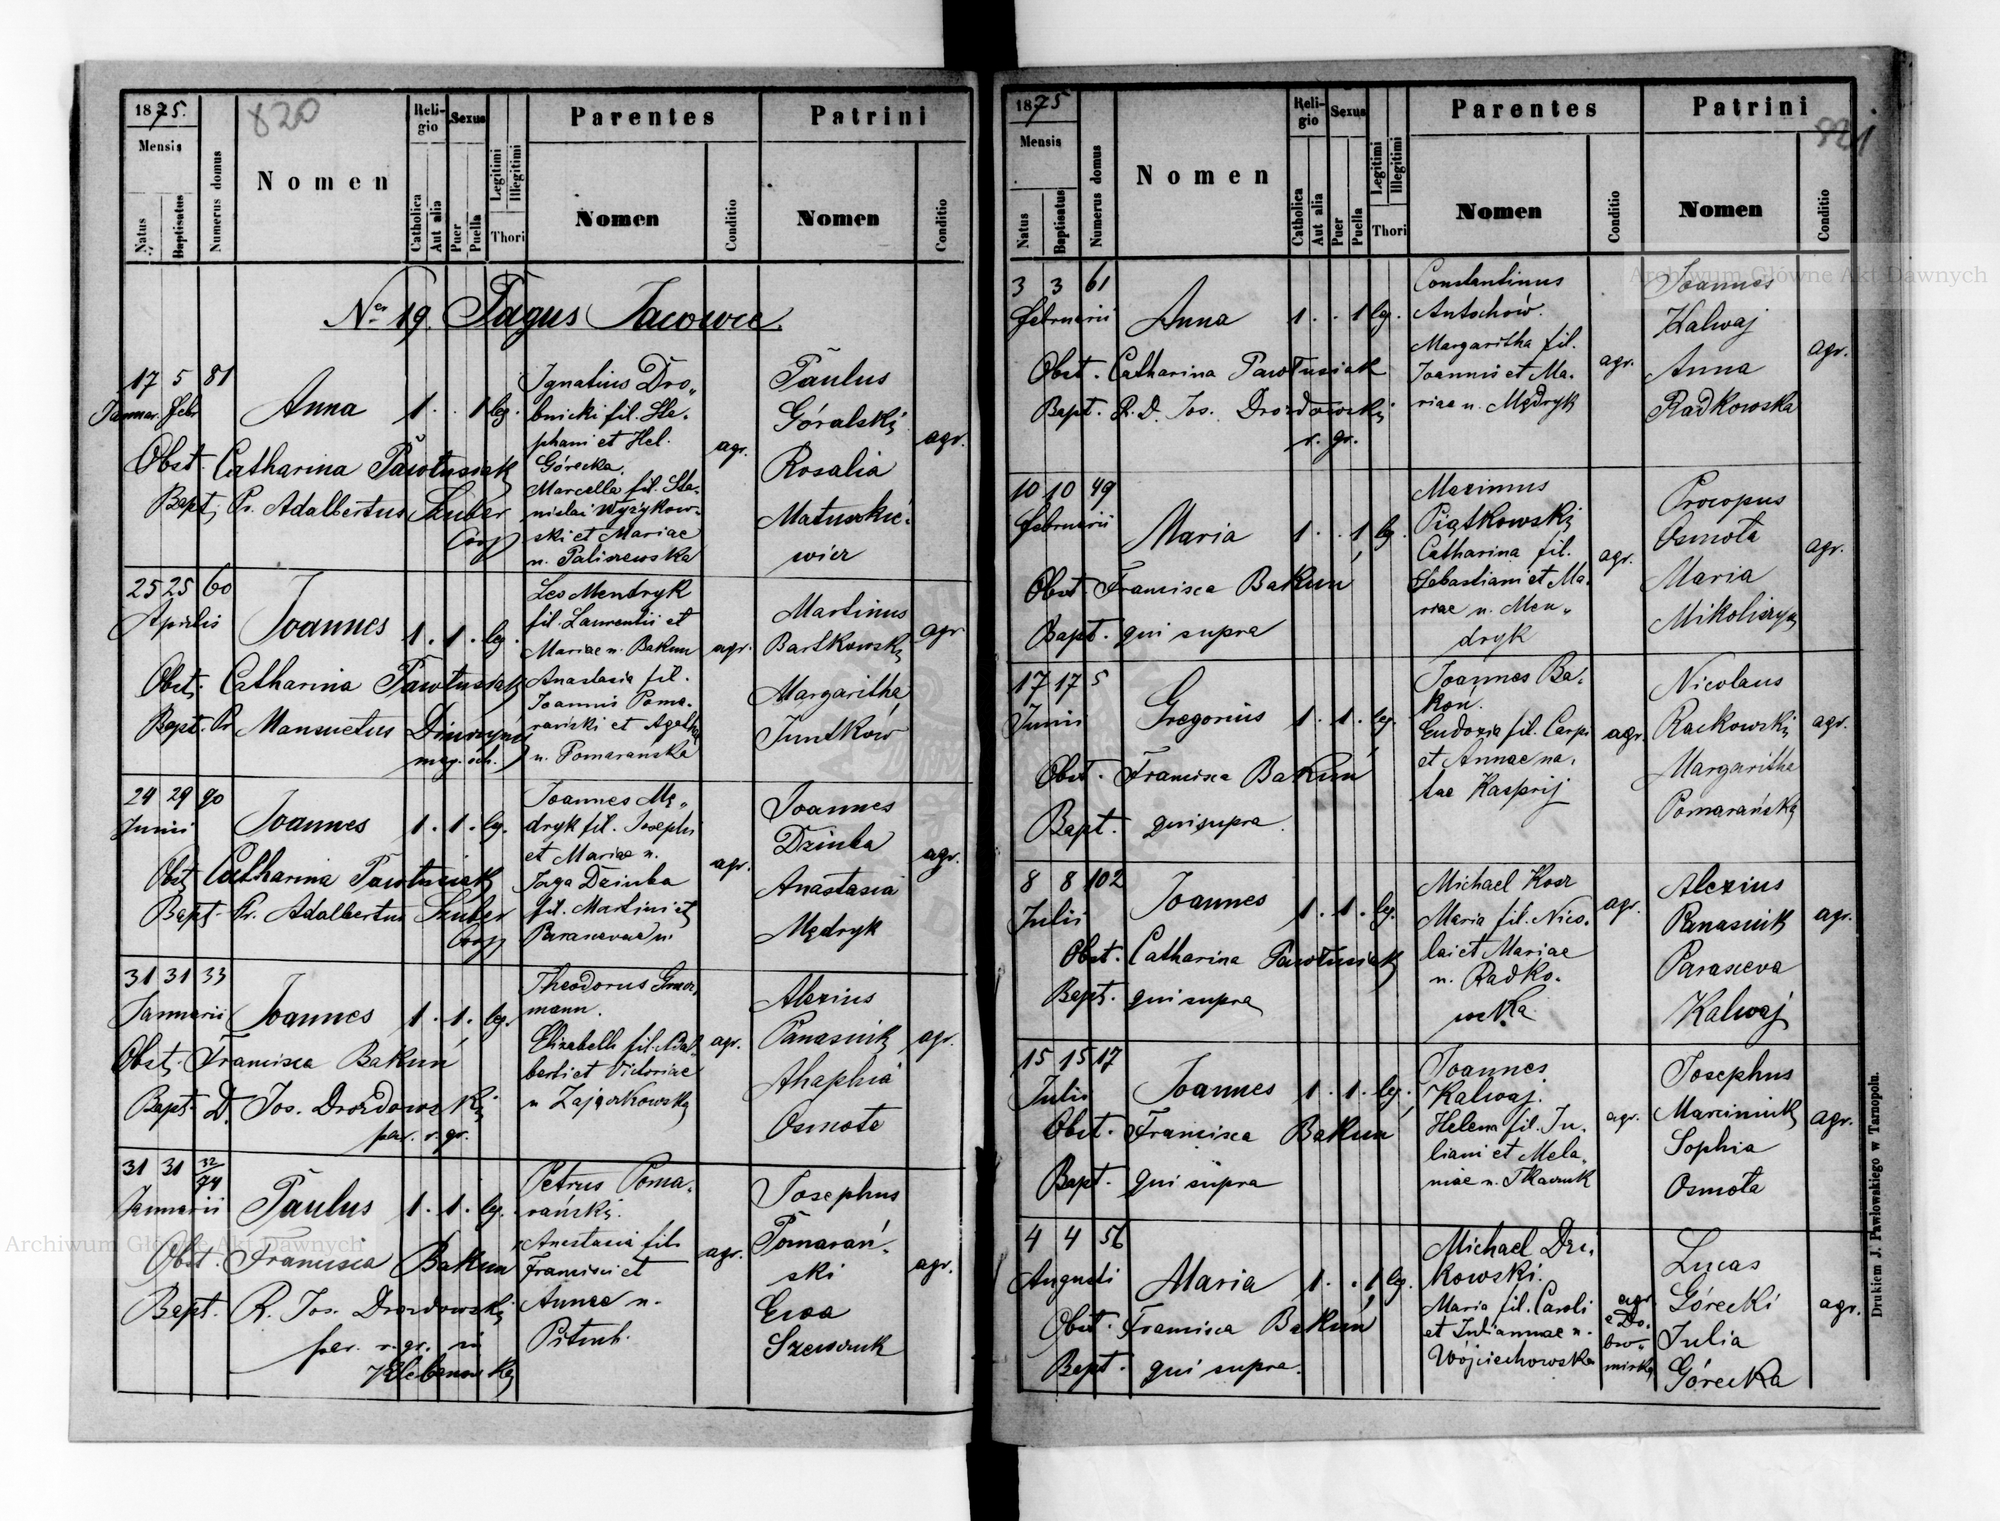 1875.
820
Mensis
Natus
Baptisatus
Numerus domus
Nomen
Religio
Catholica
Aut alia
Sexus
Puer
Puella
Legitimi
Illegitimi
Thori
Parentes
Nomen
Conditio
Patrini
Nomen
Conditio
Nr 19. Pagus Iacowce
17 5 81
Januar. Febr
Anna
1 . . 1 leg.
Obst. Catharina Pawłusiak
Bapt. Pr. Adalbertus Szuber
Coop
Ignatius Dro„
bnicki fil. Ste-
phani et Hel.
Górecka.
Marcella fil. Sta-
nislai Wyżykow-
ski et Mariae
n. Paliszewska
agr.
Paulus
Góralski
Rosalia
Matuszkie-
wicz
agr.
25 25 60
Aprilis
Joannes
1 . 1 . leg.
Obst. Catharina Pawłusiak
Bapt. Pr Mansuetus
Les Mendryk
fil. Laurentii et
Mariae n. Bakun
Anastasia fil.
Joannis Poma-
rański et Agatha
n. Pomaranska
agr.
Martinus
Bartkowski
Margaritha
Juntków
agr
24 29 90
Junii
Joannes
1 . 1 . leg.
Obst Catharina Pawłusiak
Bapt. Pr. Adalbertus Szuber
Coop
Joannes Mę„
dryk fil. Josephi
et Mariae n.
Jaga Dziuba
fil. Martini et
Parascevae n.
agr.
Joannes
Dziuba
Anastasia
Mędryk
agr.
31 31 33
Januarii
Joannes
1 . 1 . leg.
Obst. Francisca Bakuń
Bapt. D. Jos. Drozdowski
par. r. gr.
Theodorus
mann.
Elizabetha fil. Adal-
berti et Victoriae
n Zajączkowska
agr.
Alexius
Panasiuk
Ahaphia
Osmota
agr.
31 31 32/74
Januarii
Paulus
1 . 1 . leg.
Obst. Francisca Bakun
Bapt. R. Jos. Drozdowski
par. r. gr. in
Petrus Poma-
rański.
Anastasia fil.
Francisci et
Annae n.
agr.
Josephus
Pomarań-
ski
Ewa
Szewczuk
agr.
1875
821
Mensis
Natus
Baptisatus
Numerus domus
Nomen
Religio
Catholica
Aut alia
Sexus
Puer
Puella
Legitimi
Illegitimi
Thori
Parentes
Nomen
Conditio
Patrini
Nomen
Conditio
3 3 61
Februarii
Anna
1 . . 1 leg.
Obst. Catharina Pawłusiak
Bapt. R. D. Jos. Drozdowski
r. gr.
Constantinus
Antochów.
Margaritha fil.
Joannis et Ma-
riae n. Mędryk
agr.
Joannes
Kalwaj
Anna
Radkowska
agr.
10 10 49
Februarii
Maria
1 . . 1 leg.
Obst. Francisca Bakuń
Bapt. qui supra
Maximus
Piątkowski
Catharina fil.
Sebastiani et Ma-
riae n. Men„
dryk
agr.
Procopus
Osmota
Maria
Mikoliszyn
agr.
17 17 5
Junii
Gregorius
1 . 1 . leg.
Obst. Francisca Bakuń
Bapt. qui supra.
Joannes Ba-
kon.
Eudoxia fil. Carpi
et Annae na-
tae Kasprij
agr.
Nicolaus
Raskowski
Margaritha
Pomarańska
agr.
8 8 102
Julii
Joannes
1 . 1 . leg.
Obst. Catharina Pawłusiak
Bapt. qui supra
Michael Kosz
Maria fil. Nico-
lai et Mariae
n. Radko-
wska
agr.
Alexius
Panasiuk
Parasceva
Kalwaj
agr.
15 15 17
Julii
Joannes
1 . 1 . leg.
Obst. Francisca Bakun
Bapt. qui supra
Joannes
Kalwaj.
Helena fil. Ju-
liani et Mela-
niae n. Tkaczuk
agr.
Josephus
Marciniuk
Sophia
Osmota
agr.
4 4 56
Augusti
Maria
1 . . 1 leg.
Obst. Francisca Bakuń
Bapt. qui supra.
Michael Dzi-
kowski.
Maria fil. Caroli
et Juliannae n.
Wojciechowska
agr.
e Do-
bro-
mirka
Lucas
Górecki
Julia
Górecka
agr.
Drukiem J. Pawłowskiego w Tarnopolu.
Archiwum Główne Akt Dawnych
Archiwum Główne Akt Dawnych